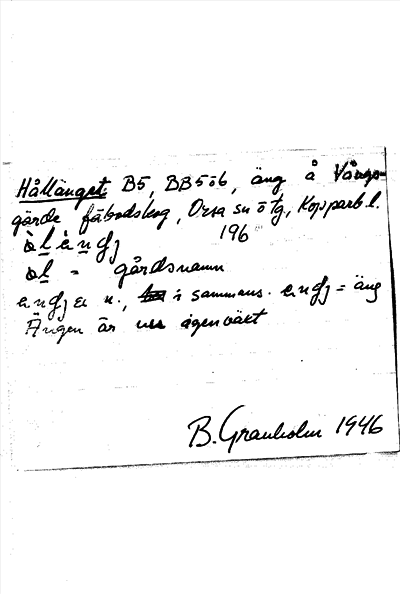 Hållänget: B5, BB5ö6, äng å Vångs-
gärde fäbodskog, Orsa sn ö tg, Kopparb l.
196
ol = gårdsnamn
n., i sammans. = äng
Ängen är nu igenväxt
B. Granholm 1946